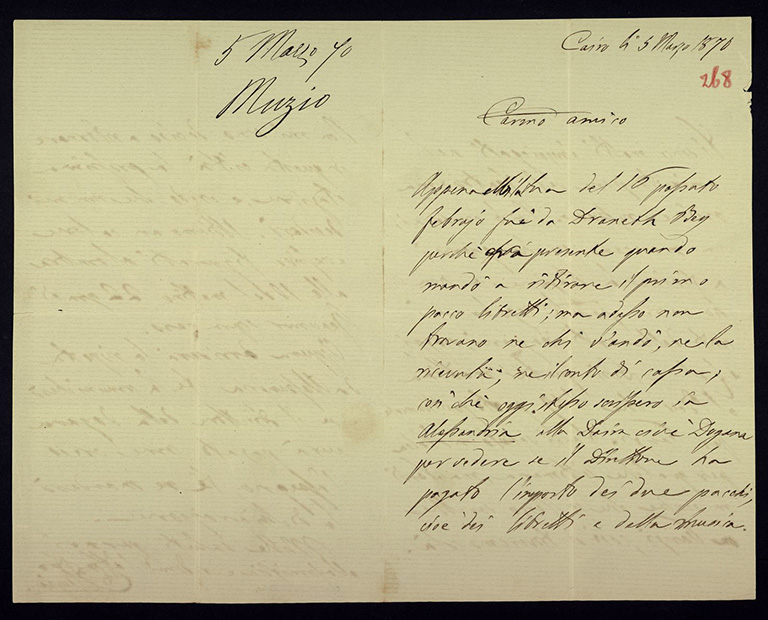 5 Marzo 70
Muzio
Cairo li 5 Marzo 1870
268
Carino amico
Appena la tua del 16 passato
febrajo fui da Draneth Bey
perchè presente quando
mandò a ritirare il primo
pacco libretti; ma adesso non
trovano ne chi v'andò, ne la
ricevuta, ne il conto di cassa;
così chè oggi stesso scrissero in
Alessandria alla Daira cioè Dogana
per vedere se il Direttore ha
pagato l'importo dei due pacchi,
cioè dei libretti e della musica.